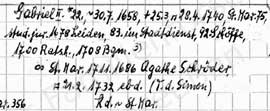 Gabriel II. *32, ~30.7.1658, +25.3. □ 20.4.1740 St. Mar. 75,
stud. jur. 1678 Leiden, 93. im Stadtdienst,
1700 Ratsh., 1708 Bgm. 3)
∞ St. Mar. 17.11.1686 Agathe Schröder
□ 21.2.1732 ebd. (T. d. Simon)
Kd. ~ St. Mar.
S. 356